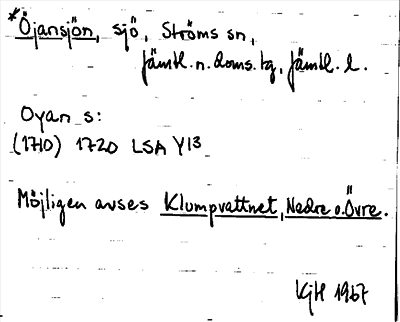 *Öjansjön, sjö, Ströms sn,
Jämtl. n. doms. tg, Jämtl. l.
Oyan s:
(1710) 1720 LSA Y13
Möjligen avses Klumpvattnet, Nedre o. Övre.
KGH 1967